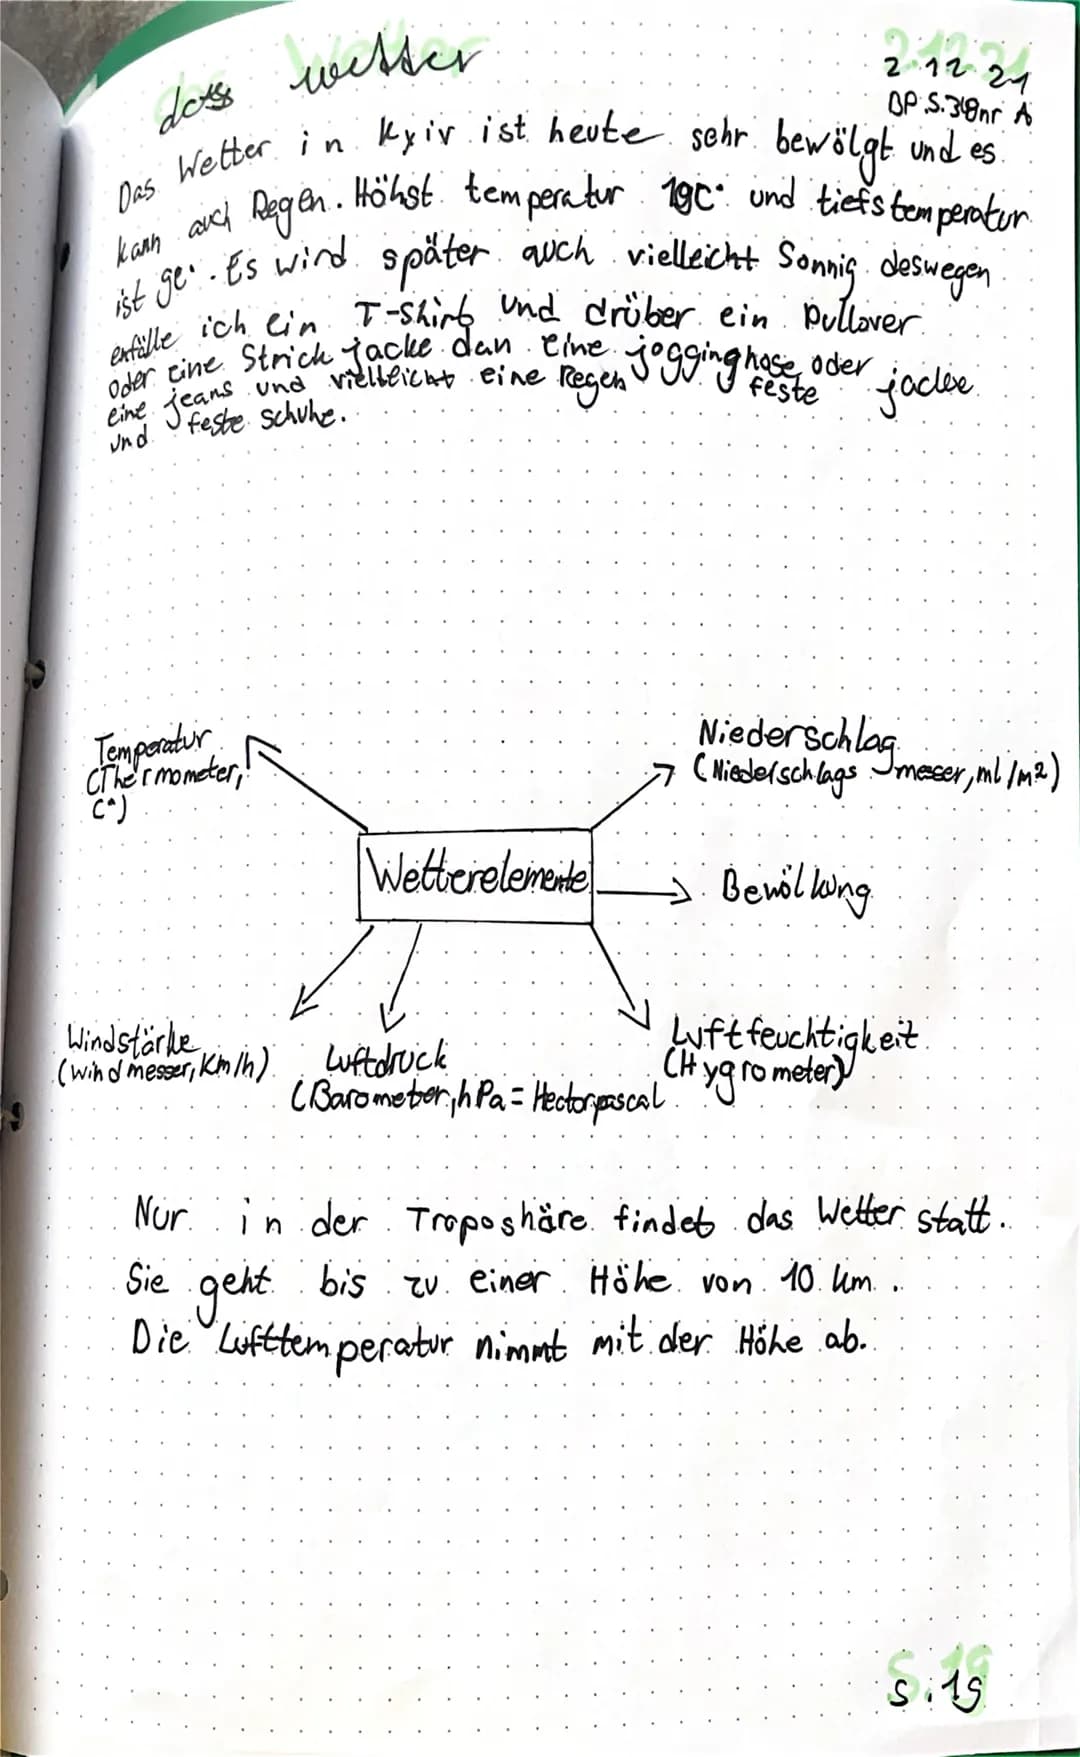 das Wetter
2.12.21
BP S. 38 nr A
Das Wetter in Kyiv ist heute sehr bewölgt und es
kann auch Regen. Höhst temperatur 19C° und tiefstemperatur
ist 9c°. Es wird später auch vielleicht Sonnig deswegen
ich ein T-Shirt und drüber ein Pullover
oder eine Strick jacke dan eine jogginghose oder
eine jeans und vielleicht eine Regen feste jacke
und feste schuhe.
Temperatur
(Thermometer,
C°)
Niederschlag
(Niederschlags messer, ml/m²)
Wetterelemente
Bewölkung
Windstärke
(windmesser, Km/h)
Luftdruck
(Barometer, hPa = Hectorpascal
Luftfeuchtigkeit
(Hygrometer)
Nur in der Troposhäre findet das Wetter statt.
Sie geht bis zu einer Höhe von 10 km.
Die Lufttemperatur nimmt mit der Höhe ab.
S.19